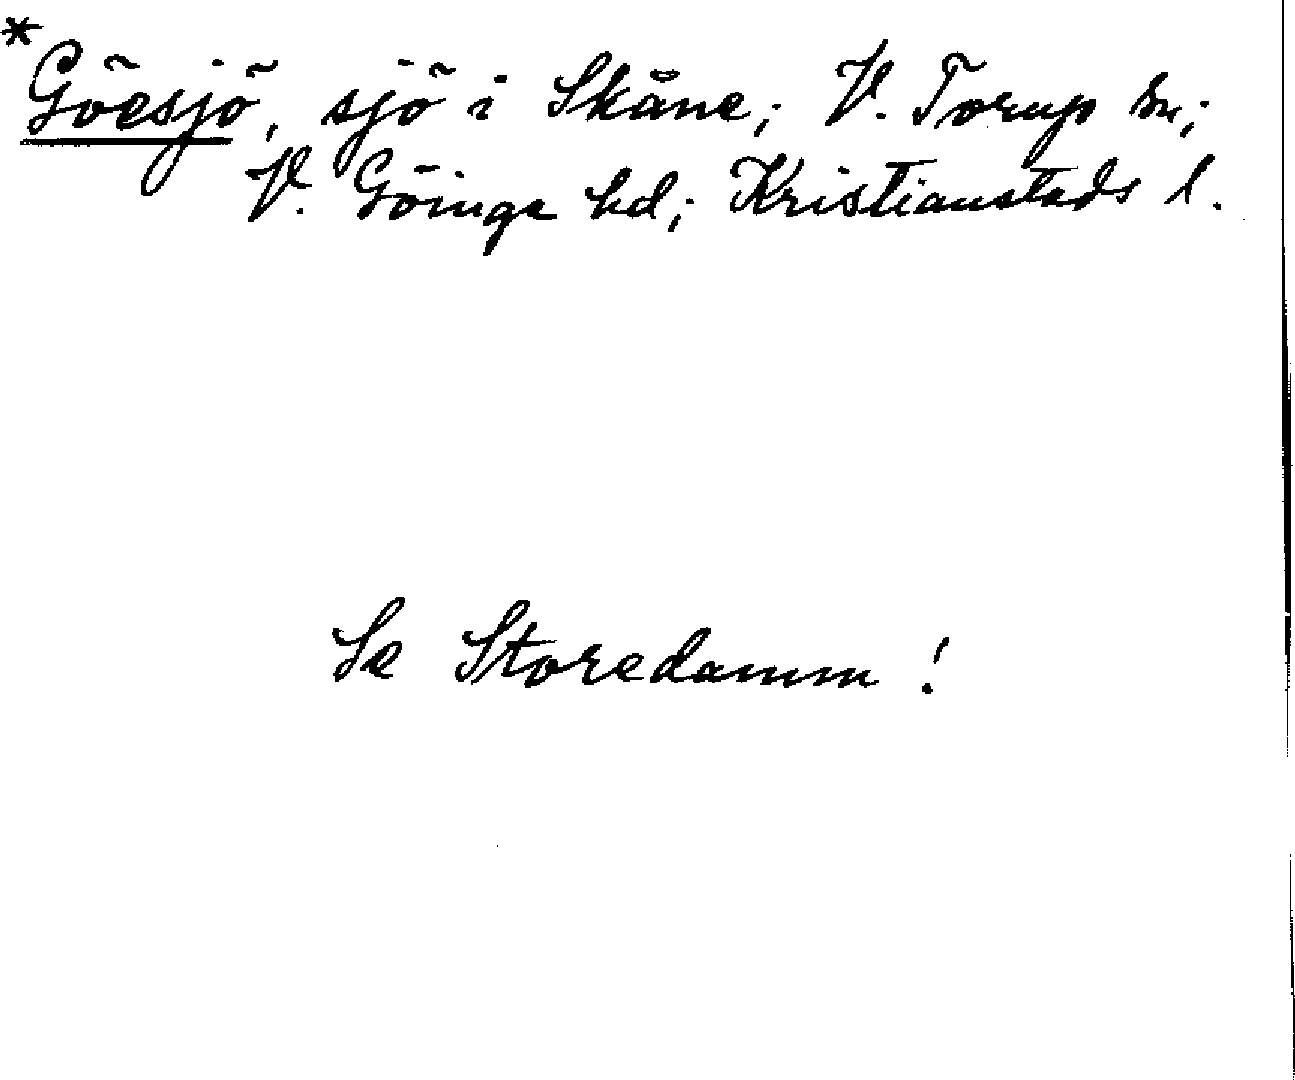 *Göesjö, sjö i Skåne; V. Torup sn;
V. Göinge hd; Kristianstads l.
Se Storedamm!